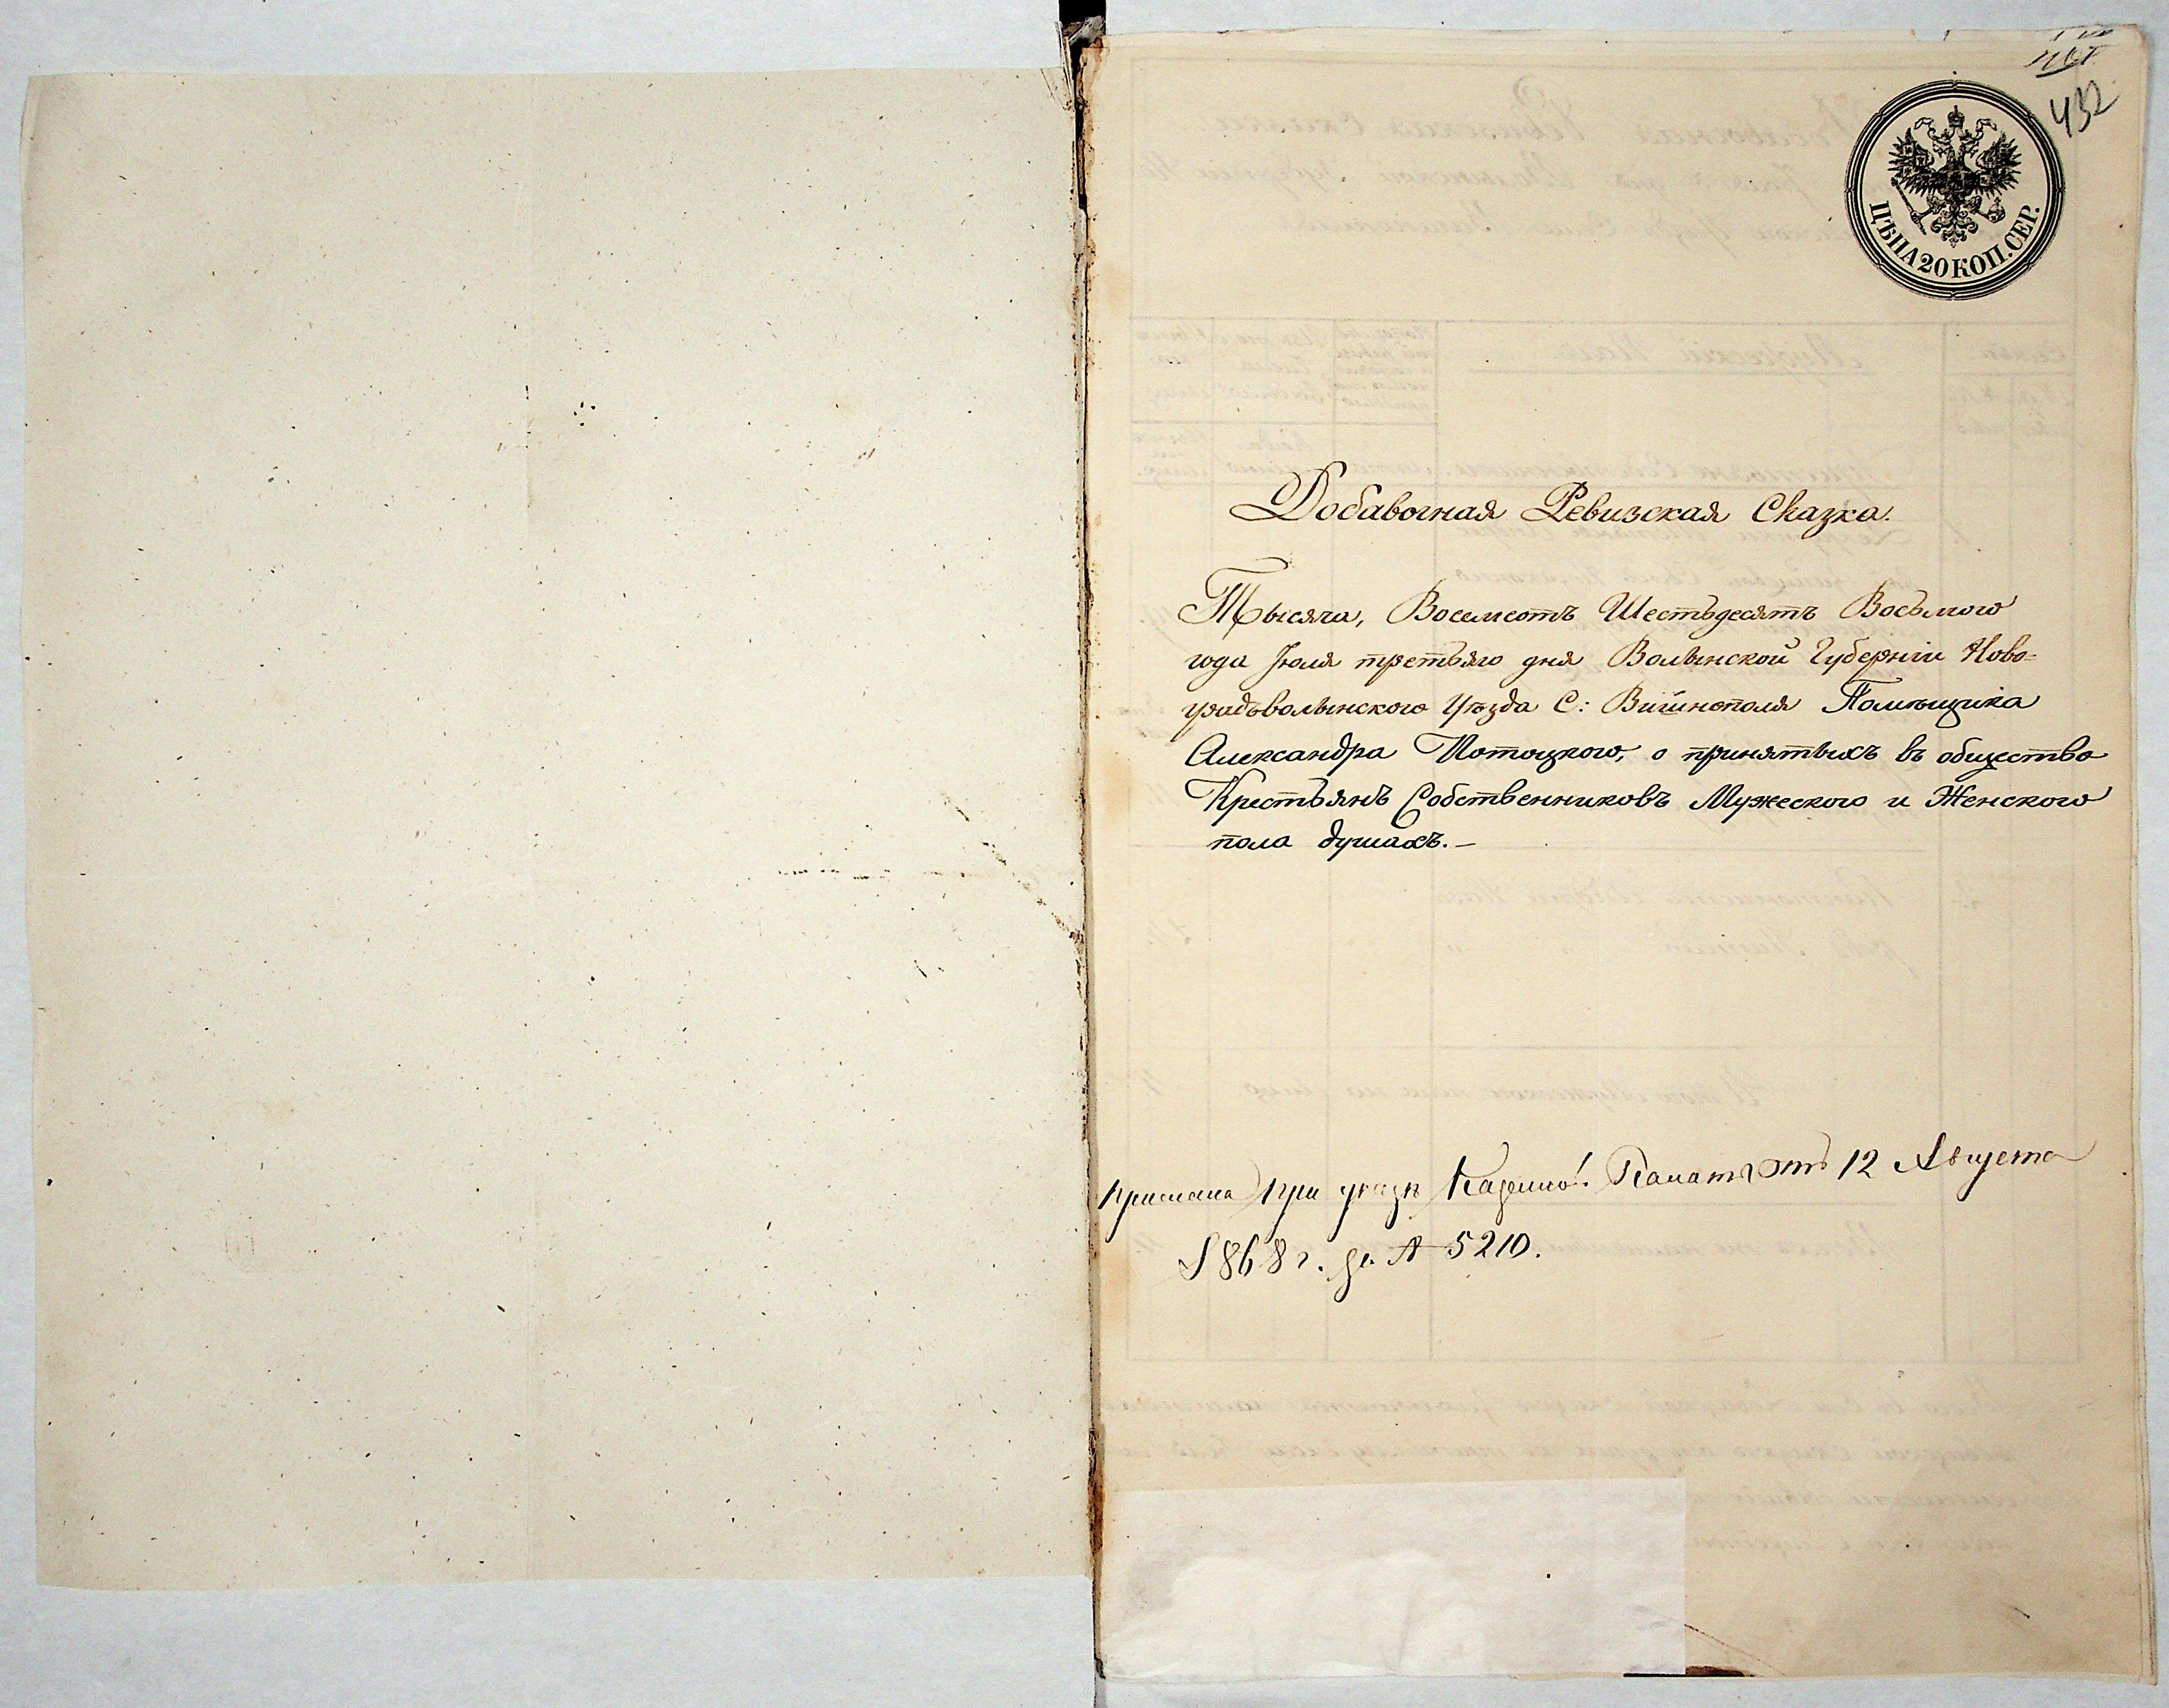 432
ЦѢНА 20 КОП. СЕР.
Добавочная Ревизская Сказка.
Тысяча, Восемсотъ Шестьдесятъ Восьмого
года Іюля третьяго дня Волынской Губерніи Ново=
градъволынского Уѣзда С: Вишнополя Помѣщика
Александра Потоцкого, о принятыхъ въ общество
Крестьянъ Собственниковъ Мужеского и Женского
пола душахъ.—
при указѣ Казенной Палаты отъ 12 Августа
1868 г. за № 5210.